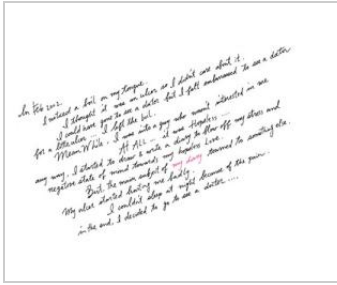 In Feb 2012.
I noticed a boil on my tongue.
I thought it was an ulcer so I didn't care about it.
I could have gone to see a doctor but I felt embarrassed to see a doctor
for a little ulcer ... I left the boil.
Mean While, I was into a guy who wasn't interested in me
At ALL ... it was Hopeless ...
any way, I started to draw & write a diary to blow off my stress and
negative state of mind towards my hopeless Love.
But, the main subject of my diary turned to something else.
My ulcer started hurting me badly.
I couldn't sleep at night because of the pain.
in the end, I decided to go to see a doctor ....